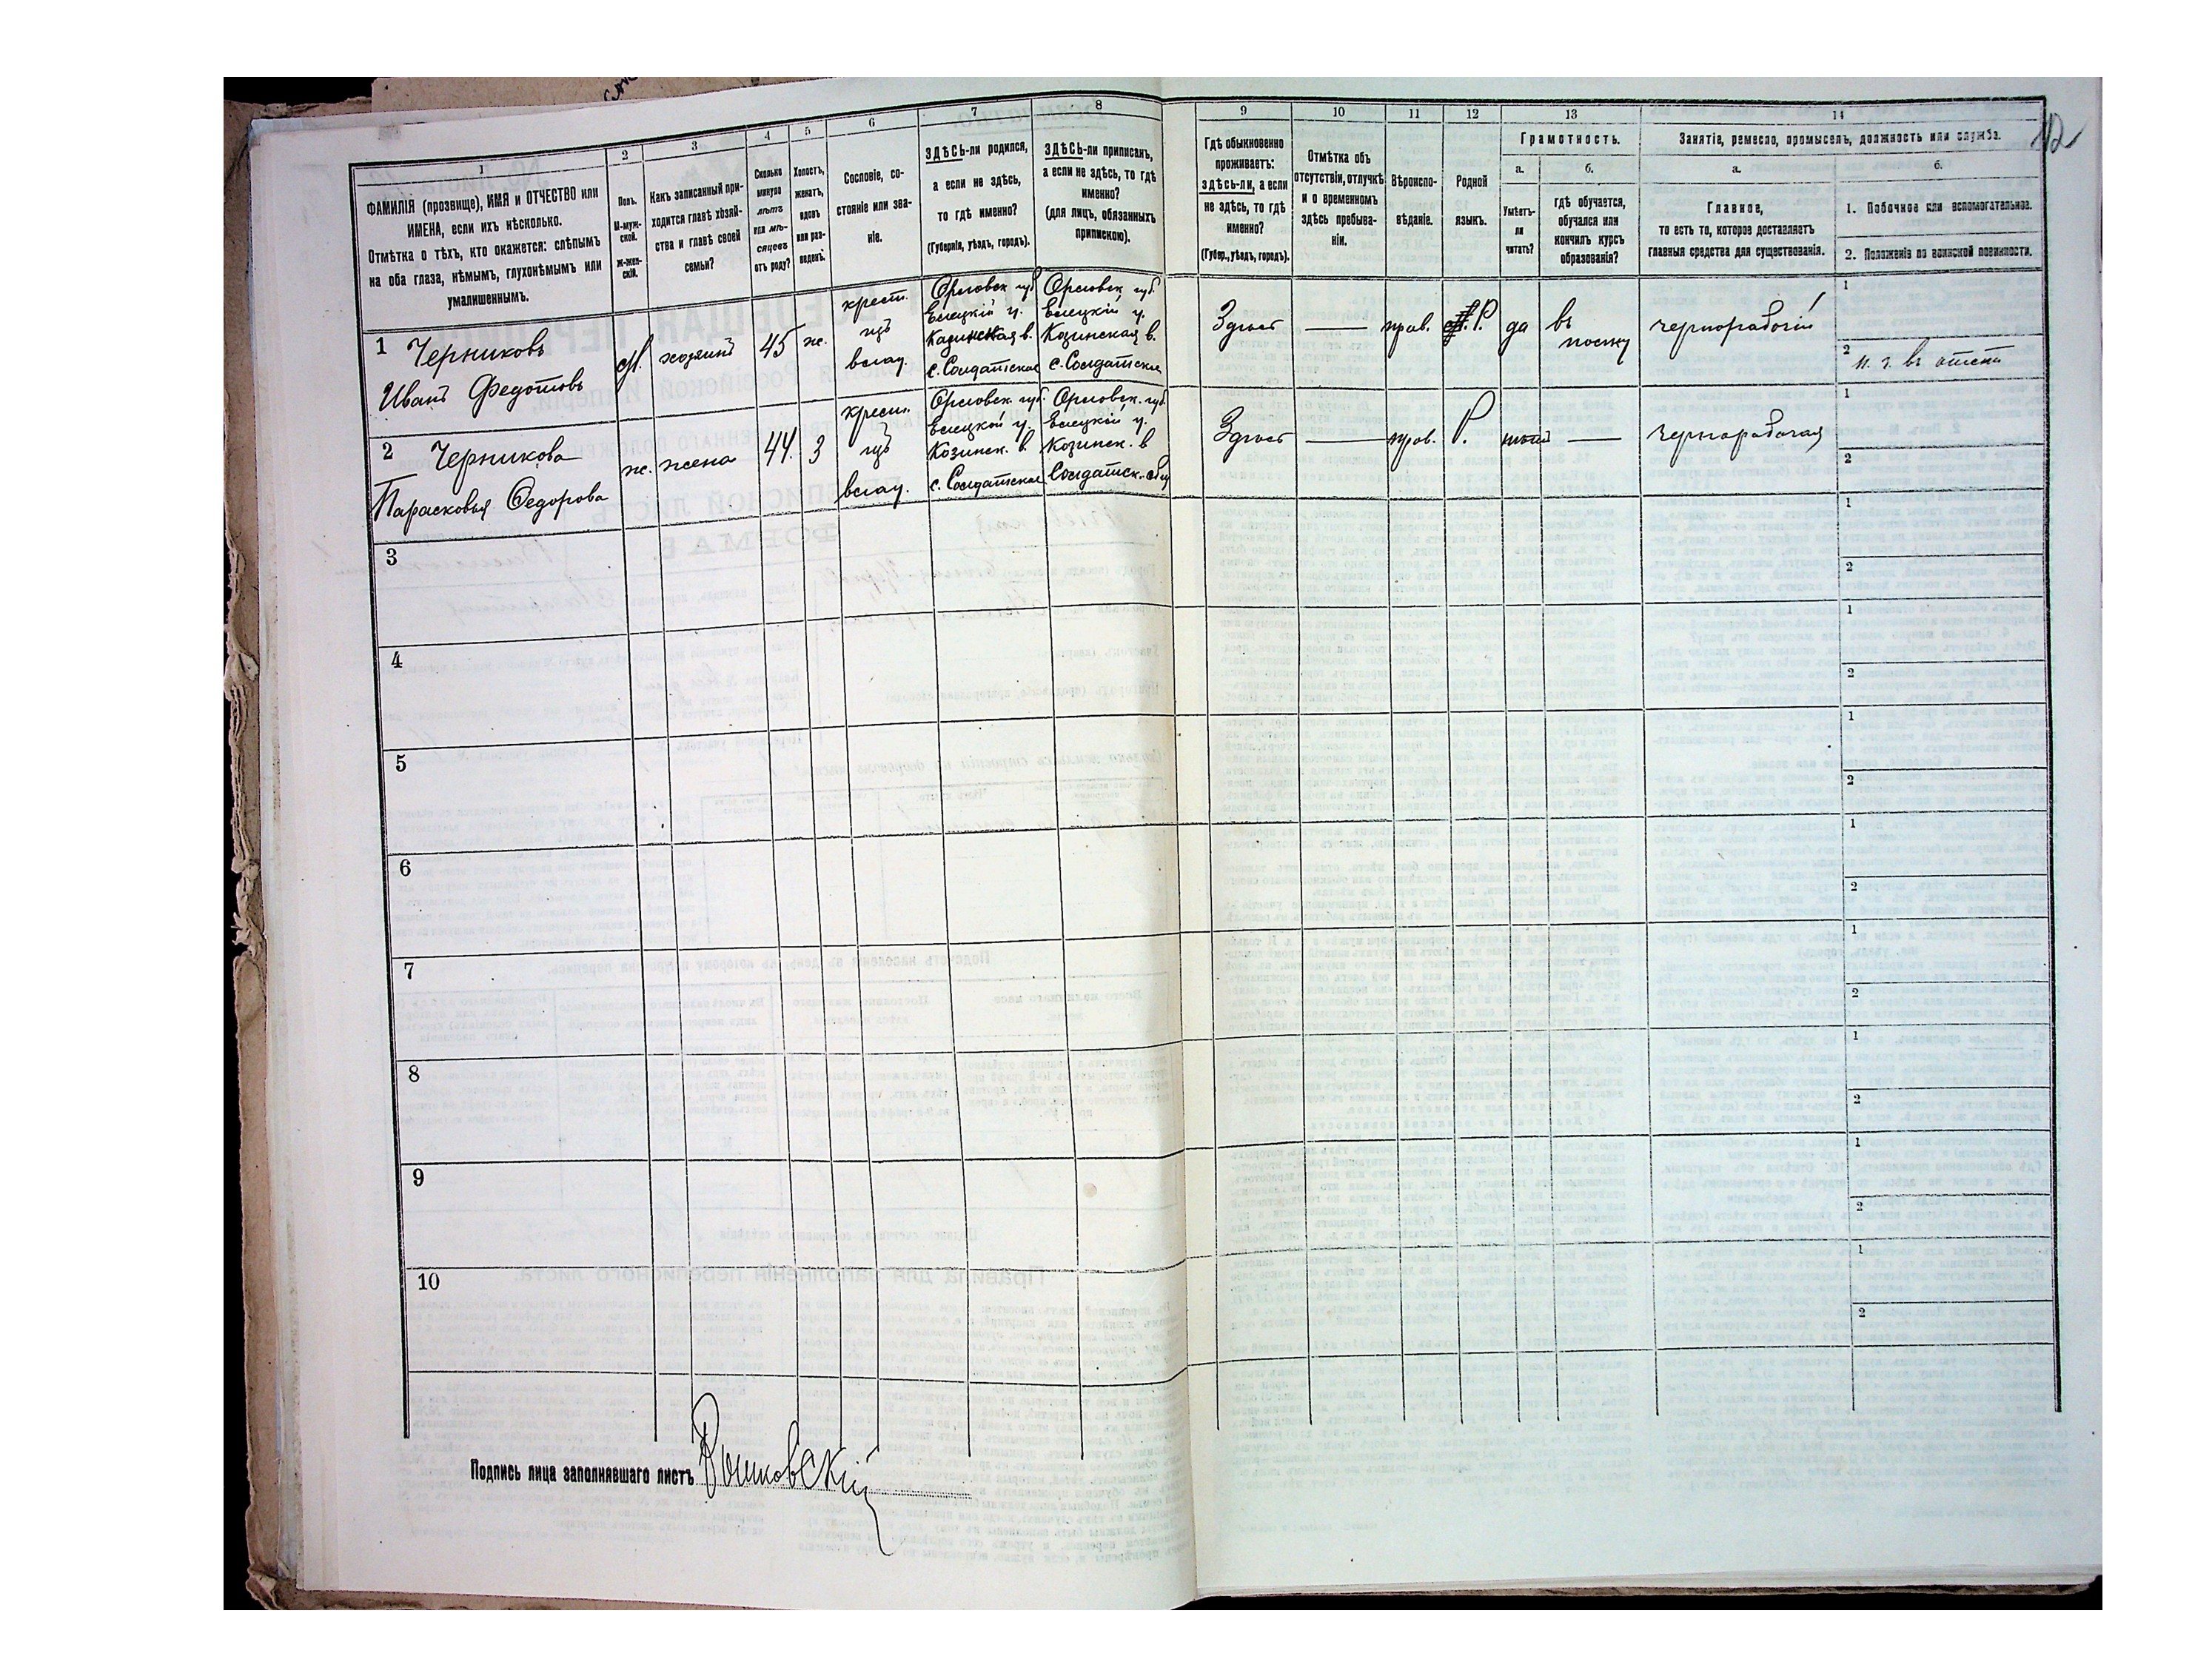 42
1 2 3 4 5 6 7 8 9 10 11 12 13 14
ФАМИЛІЯ (прозвище), ИМЯ и ОТЧЕСТВО или
ИМЕНА, если ихъ нѣсколько.
Отмѣтка о тѣхъ, кто окажется: слѣпымъ
на оба глаза, нѣмымъ, глухонѣмымъ или
умалишеннымъ.
Полъ.
М-муж-
ской.
Ж-жен-
скій.
Какъ записанный при-
ходится главѣ хозяй-
ства и главѣ своей
семьи?
Сколько
минуло
лѣтъ
или мѣ-
сяцевъ
отъ роду?
Холостъ,
женатъ,
вдовъ
или раз-
веденъ.
Сословіе, со-
стояніе или зва-
ніе.
ЗДѢСЬ-ли родился,
а если не здѣсь,
то гдѣ именно?
(Губернія, уѣздъ, городъ).
ЗДѢСЬ-ли приписанъ,
а если не здѣсь, то гдѣ
именно?
(для лицъ, обязанныхъ
припискою).
Гдѣ обыкновенно
проживаетъ:
здѣсь-ли, а если
не здѣсь, то гдѣ
именно?
(Губер., уѣздъ, городъ).
Отмѣтка объ
отсутствіи, отлучкѣ
и о временномъ
здѣсь пребыва-
ніи.
Вѣроиспо-
вѣданіе.
Родной
языкъ.
Грамотность.
а.
Умѣетъ-
ли
читать?
б.
гдѣ обучается,
обучался или
кончилъ курсъ
образованія?
Занятіе, ремесло, промыселъ, должность или служба.
а.
Главное,
то есть то, которое доставляетъ
главныя средства для существованія.
б.
1. Побочное или вспомогательное.
2. Положеніе по воинской повинности.
1 Черниковъ
Иванъ Федотовъ
М. хозяинъ 45 ж.
крест.
изъ
влад.
Орловск губ
Елецкій у.
Казинская в.
с. Солдатское
Орловск. губ.
Елецкій у.
Козинская в.
с. Солдатское
Здѣсь — прав. Р. да въ
полку
чернорабочій
1
2
2 Черникова
Парасковья Федорова
ж. жена 44. З
крест.
изъ
влад.
Орловск. губ.
Елецкой у.
Козинск. в.
с. Солдатское
Орловск. губ.
Елецкій у.
Козинск. в
Солдатск. общ
Здѣсь — прав. Р. нѣтъ —
чернорабочая
1
2
3
1
2
4
1
2
5
1
2
6
1
2
7
1
2
8
1
2
9
1
2
10
1
2
Подпись лица заполнявшаго листъ